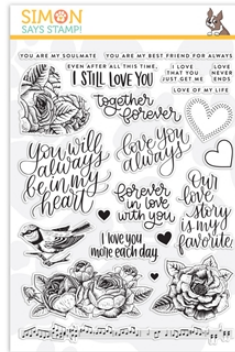 SIMON
SAYS STAMP!
YOU ARE MY SOULMATE
YOU ARE MY BEST FRIEND FOR ALWAYS
EVEN AFTER ALL THIS TIME,
I STILL LOVE YOU
I LOVE
THAT YOU
JUST GET ME
LOVE
NEVER
ENDS
LOVE OF MY LIFE
together
forever
you will
always
be in my
heart
love you
always
forever
in love
with you
Our
love
story
is my
favorite
I love you
more each day.